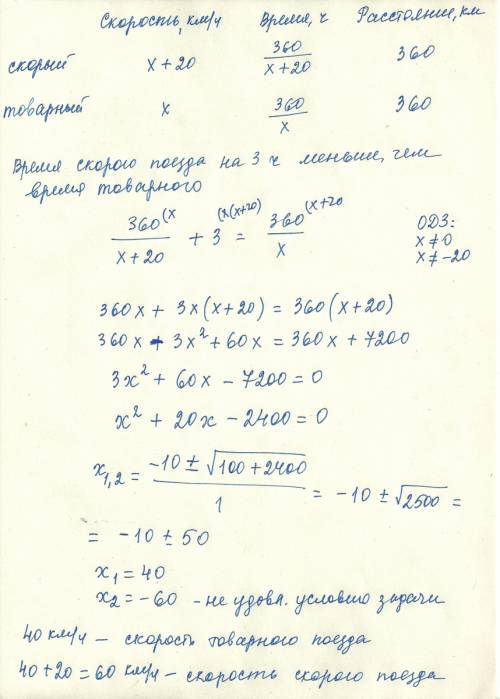 Скорость, км/ч Время, ч Расстояние, км
скорый x + 20 360/(x+20) 360
товарный x 360/x 360
Время скорого поезда на 3 ч меньше, чем
время товарного
360/(x+20) (x + 3 (x(x+20) = 360/x (x+20
ОДЗ:
x ≠ 0
x ≠ -20
360x + 3x(x+20) = 360(x+20)
360x + 3x² + 60x = 360x + 7200
3x² + 60x - 7200 = 0
x² + 20x - 2400 = 0
x₁,₂ = (-10 ± √(100 + 2400))/1 = -10 ± √2500 =
= -10 ± 50
x₁ = 40
x₂ = -60 - не удовл. условию задачи
40 км/ч - скорость товарного поезда
40 + 20 = 60 км/ч - скорость скорого поезда